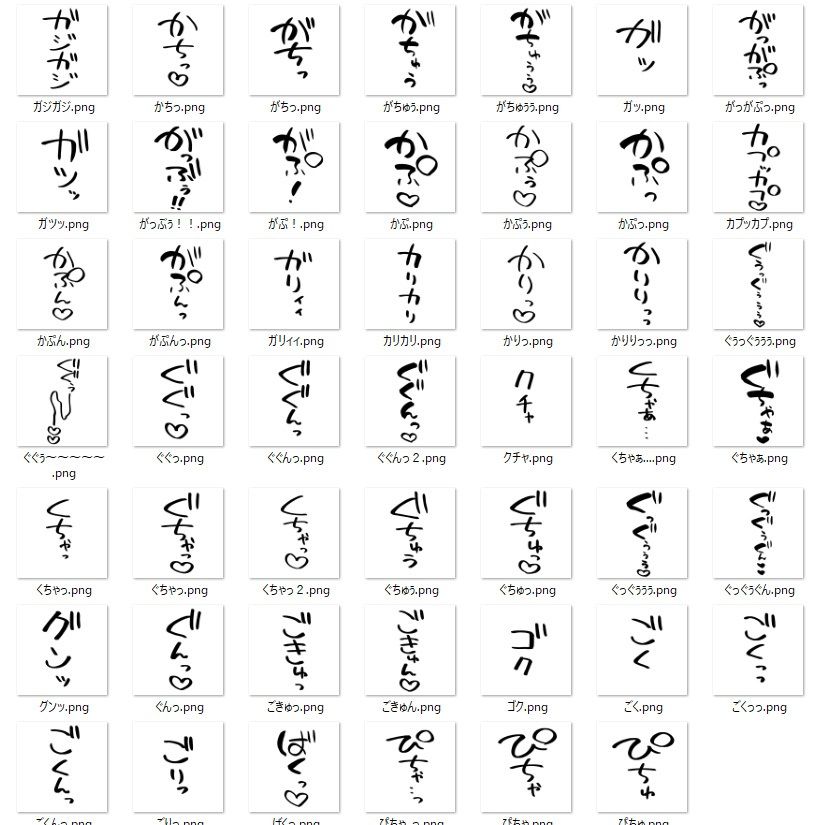 ガジガジ
ガジガジ.png
かちっ♡
かちっ.png
がちっ
がちっ.png
がちゅう
がちゅぅ.png
がちゅぅぅ♡
がちゅぅぅ.png
ガッ
ガッ.png
がっがぷっ
がっがぷっ.png
ガツッ
ガツッ.png
がっぶぅ!!
がっぷぅ！！.png
がぷ!
がぷ！.png
かぷ♡
かぷ.png
かぷぅ♡
かぷぅ.png
かぷっ
かぷっ.png
カプッカプ♡
カプッカプ.png
かぷん♡
かぷん.png
がぷんっ
がぷんっ.png
ガリィィ
ガリィィ.png
カリカリ
カリカリ.png
かりっ♡
かりっ.png
かりりっっ
かりりっっ.png
ぐぅっぐぅぅぅ♡
ぐぅっぐぅぅぅ.png
ぐぐぅ～～～～～
.png
ぐぐっ♡
ぐぐっ.png
ぐぐんっ
ぐぐんっ.png
ぐぐんっ♡
ぐぐんっ２.png
クチャ
クチャ.png
くちゃぁ…
くちゃぁ....png
ぐちゃぁ♥
ぐちゃぁ.png
くちゃっ
くちゃっ.png
ぐちゃっ♡
ぐちゃっ.png
くちゃっ♡
くちゃっ２.png
ぐちゅう
ぐちゅぅ.png
ぐちゅっ♡
ぐちゅっ.png
ぐっぐぅぅぅ♡
ぐっぐぅぅぅ.png
ぐっぐぅぐん♥
ぐっぐぅぐん.png
グンッ
グンッ.png
ぐんっ♡
ぐんっ.png
ごきゅっ
ごきゅっ.png
ごきゅん♡
ごきゅん.png
ゴク
ゴク.png
ごく
ごく.png
ごくっっ
ごくっっ.png
ごくんっ
ごくんっ.png
ごりっ
ごりっ.png
ばくっ♡
ばくっ.png
ぴちゃ…っ
ぴちゃ…っ.png
ぴちゃ
ぴちゃ.png
ぴちゅ
ぴちゅ.png